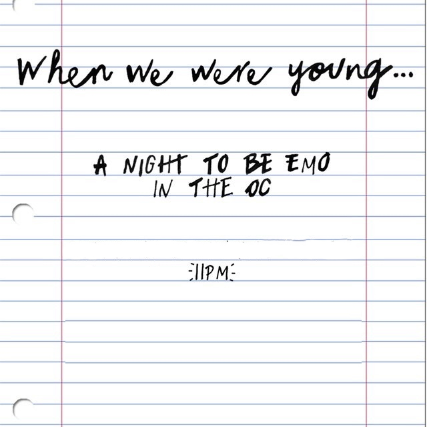 When we were young...
A NIGHT TO BE EMO
IN THE OC
11PM